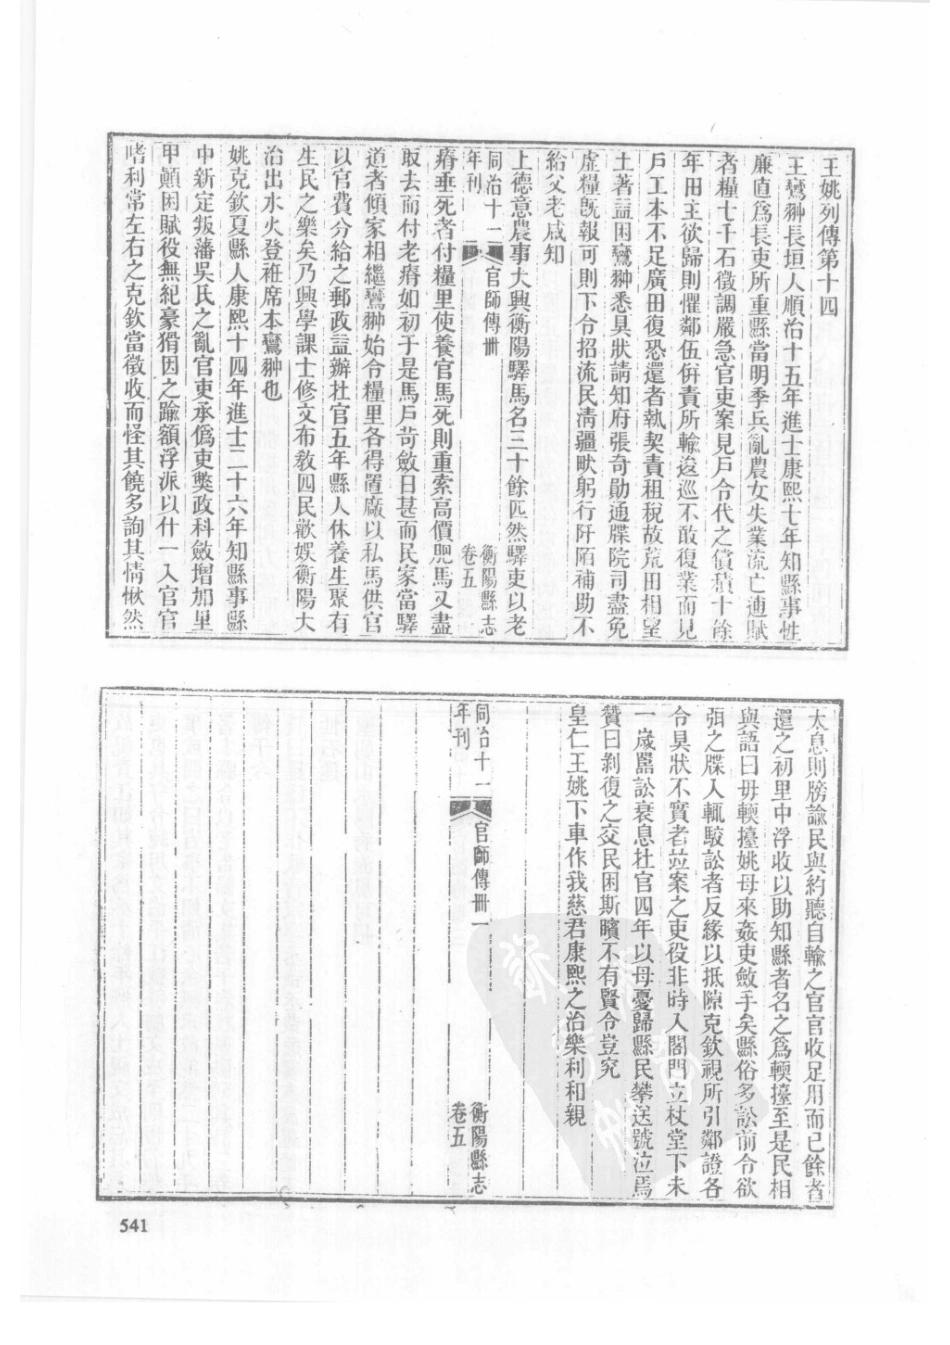 王姚列傳第十四
王鸞翀長垣人順治十五年進士康熙七年知縣事性
廉直爲長吏所重縣當明季兵亂農女失業流亡逋賦
者糧七千石徵調嚴急官吏案見戶令代之償積十餘
年田主欲歸則懼鄰伍併責所輸逡巡不敢復業而見
戶工本不足廣田復恐還者執契責租稅故荒田相望
土著益困鸞翀悉具狀請知府張奇勛通牒院司盡免
虛糧旣報可則下令招流民淸疆畎躬行阡陌補助不
給父老咸知
上德意農事大興衡陽驛馬名三十餘匹然驛吏以老
同治十二年刊 官師傳卌 衡陽縣志卷五
瘠垂死者付糧里使養官馬死則重索高價兜馬又盡
取去而付老瘠如初于是馬戶苛斂日甚而民家當驛
道者傾家相繼鸞翀始令糧里各得置廠以私馬供官
以官費分給之郵政益辦杜官五年縣人休養生聚有
生民之樂矣乃興學課士修文布敎四民歡娛衡陽大
治出水火登袵席本鸞翀也
姚克欽夏縣人康熙十四年進士二十六年知縣事縣
中新定叛藩吳氏之亂官吏承僞吏獘政科斂增加里
甲顚困賦役無紀豪猾因之踰額浮派以什一入官官
嗜利常左右之克欽當徵收而怪其饒多詢其情愀然
太息則牓諭民與約聽自輸之官官收足用而已餘者
還之初里中浮收以助知縣者名之爲輭擡至是民相
與語曰毋輭擡姚母來姦吏斂手矣縣俗多訟前令欲
弭之牒入輒駮訟者反緣以抵隙克欽視所引鄰證各
令具狀不實者竝案之吏役非時入閤門立杖堂下未
一歲嚚訟衰息杜官四年以母憂歸縣民攀送號泣焉
贊曰剝復之交民困斯瞻不有賢令豈究
皇仁王姚下車作我慈君康熙之治樂利和親
同治十一年刊 官師傳卌一 衡陽縣志卷五
541